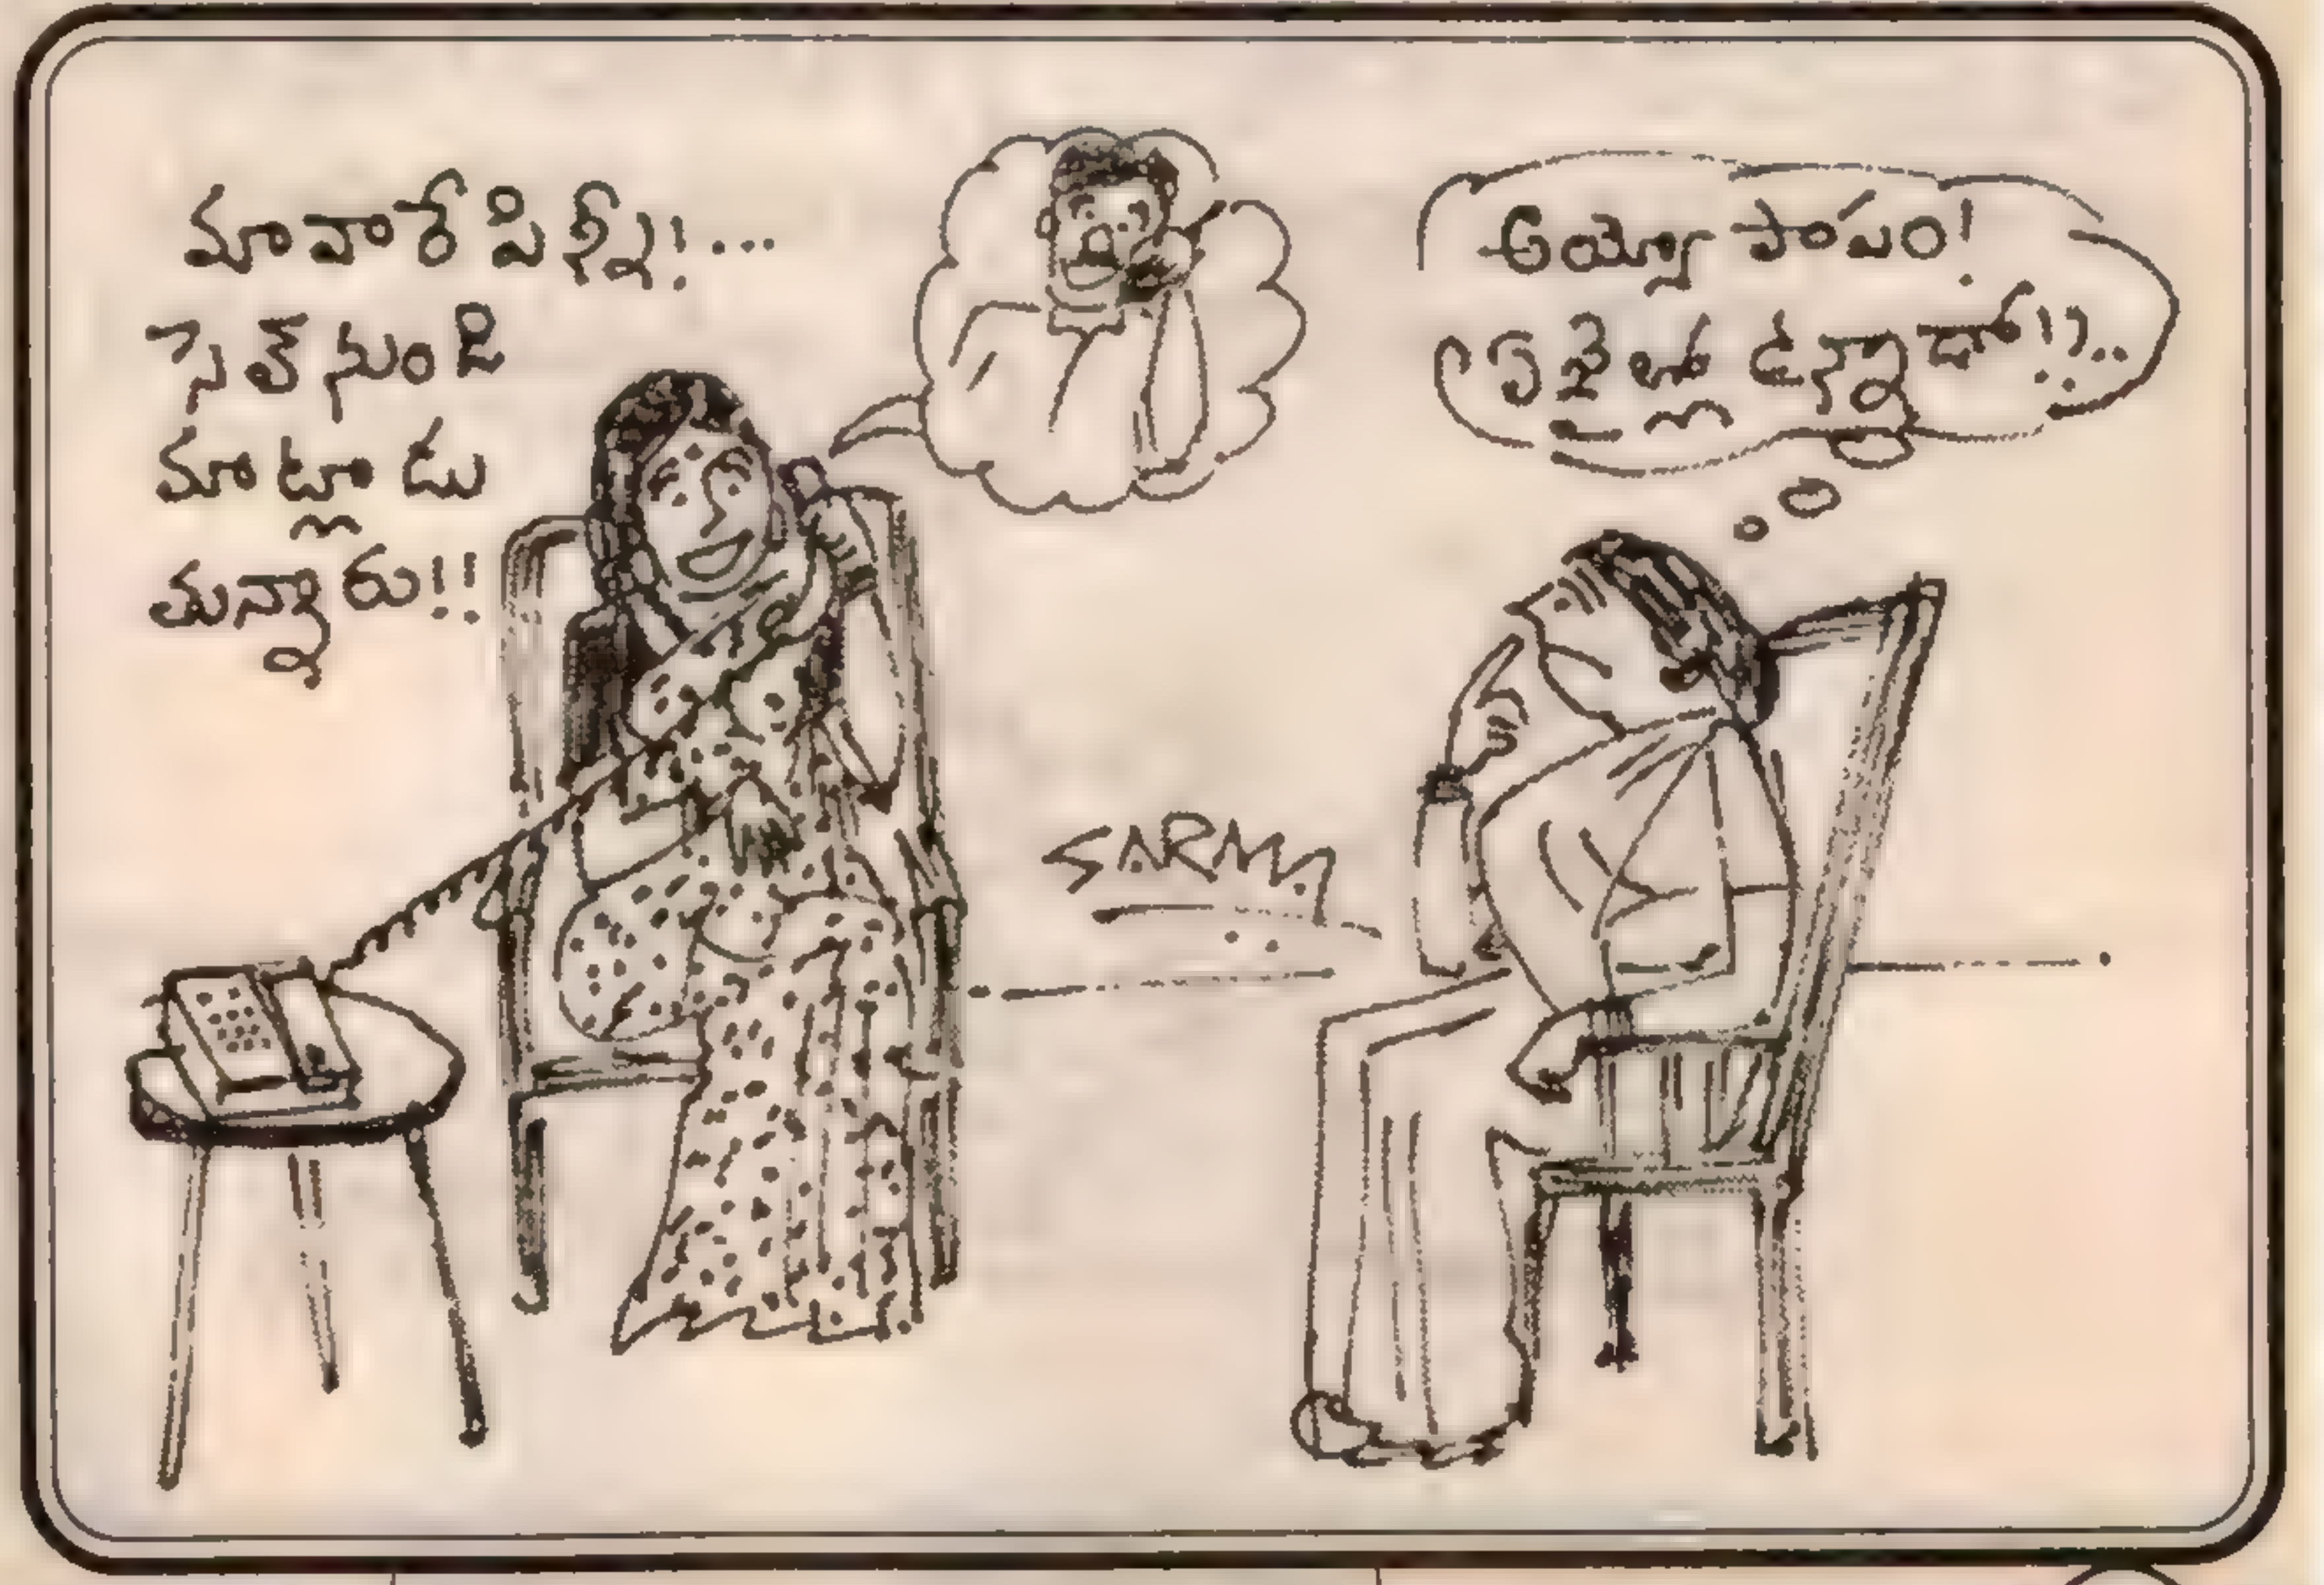 మావారే పిన్ని!...
సెల్ నుండి
మాట్లాడు
తున్నారు!!
అయ్యో పాపం!
ఏ జైలులో ఉన్నాడో!?..
SARMA